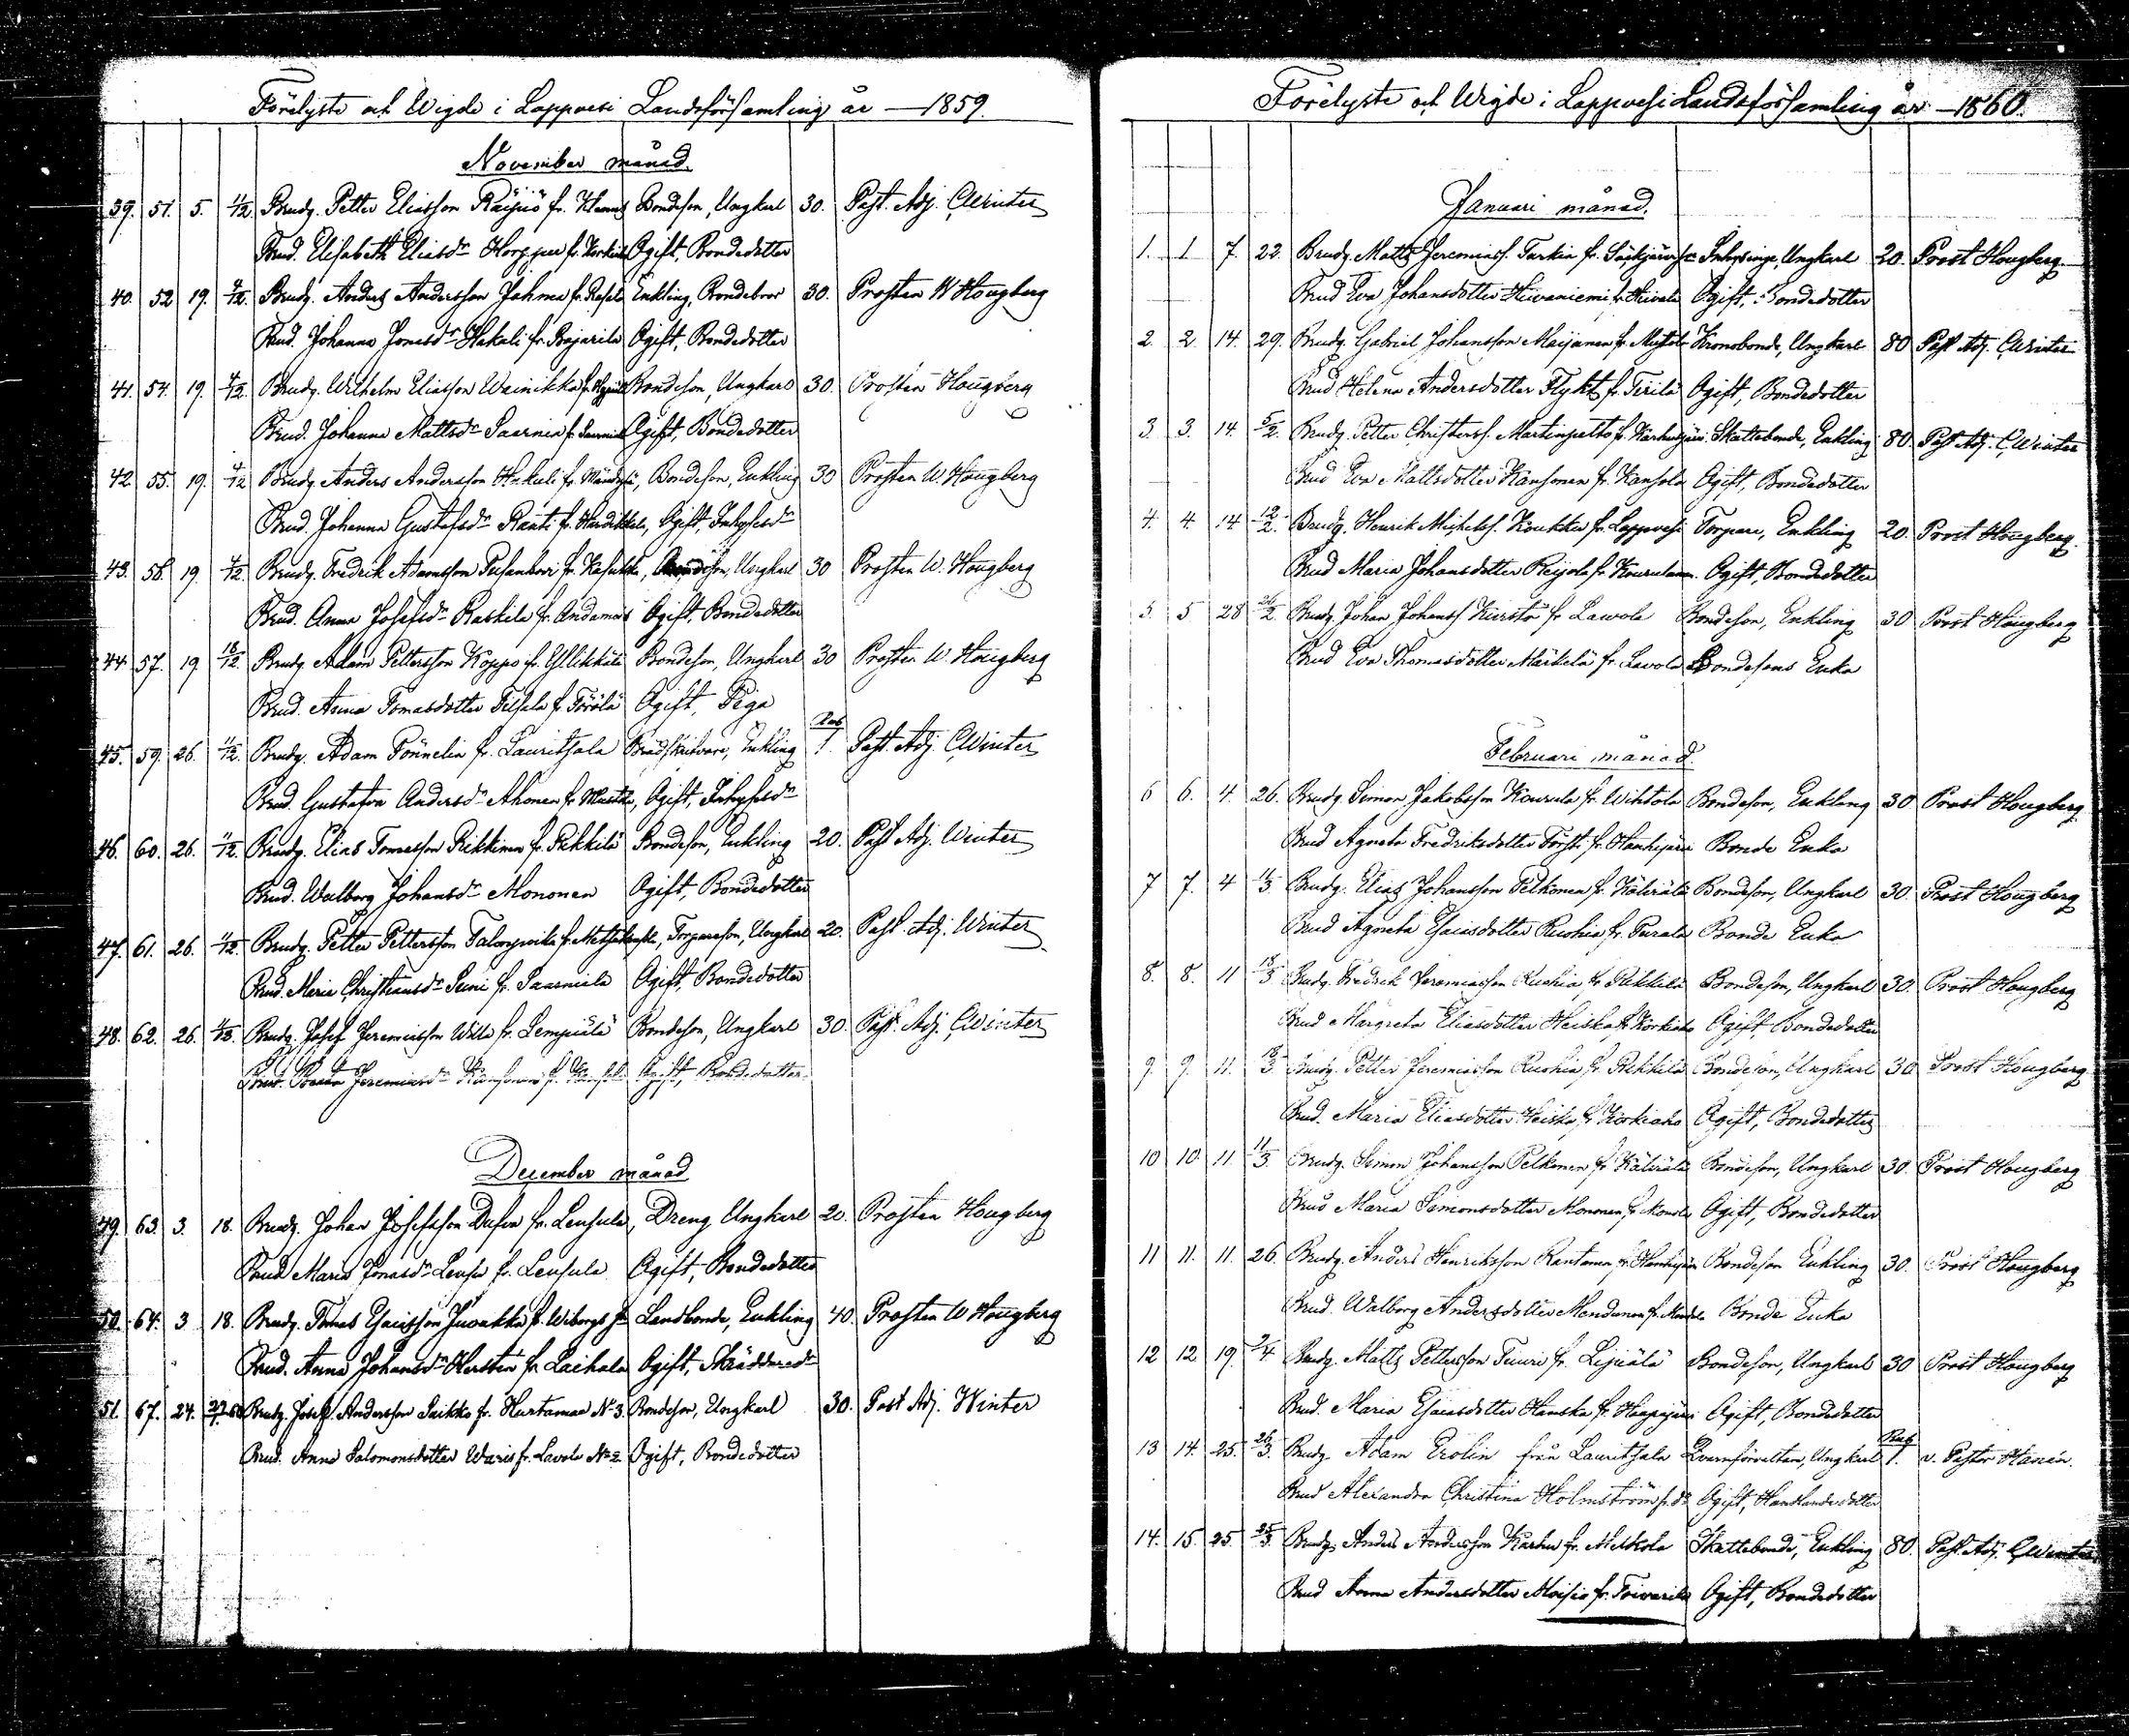 Förelyste och Wigde i Lappvesi Landsförsamling år — 1859.
November månad.
39. 51. 5. 4/12. Brudg. Petter Eliasson Räihiö fr. Bondeson, Ungkarl 30. Past. Adj. C Winter
Brud. Elisabeth Eliasdr fr. Ogift, Bondedotter
40. 52 19. Brudg. Anders Andersson fr. Enkling, Bondebror 30. Prosten W Hougberg
Brud. Johanna Jonasdr Hakali fr. Rajarila Ogift, Bondedotter
41. 54. 19. 4/12. Brudg. Wilhelm Eliasson Wainikka fr. Bondeson, Ungkarl 30. Prosten Hougberg
Brud. Johanna Mattsdr Saarnia fr. Ogift, Bondedotter
42. 55. 19. 4/12 Brudg. Anders Andersson Hakuli fr. Bondeson, Enkling 30 Prosten W. Hougberg
Brud. Johanna Gustafsdr Ranti fr. Ogift, Inhysesdr
43. 58. 19. 4/12 Brudg. Fredrik Adamsson fr. Bondeson, Ungkarl 30 Prosten W. Hougberg
Brud. Anna Josefsdr Raskila fr. Ogift, Bondedotter
44. 57. 19 18/12. Brudg. Adam Pettersson Koppo fr. Yllikkälä Bondeson, Ungkarl 30 Prosten W. Hougberg
Brud. Anna Tomasdotter fr. Törölä Ogift, Piga
45. 59. 26. 11/12. Brudg. Adam Fönnelin fr. Lauritsala Enkling Rub 1. Past. Adj. C Winter
Brud. Gustafva Andersdr Ahonen fr. Ogift, Inhysesdr
46. 60. 26. 11/12. Brudg. Elias Tomasson Pikkinen fr. Pikkilä Bondeson, Enkling 20. Past Adj. Winter
Brud. Walborg Johansdr Mononen Ogift, Bondedotter
47. 61. 26. 11/12. Brudg. Petter Pettersson fr. Torpareson, Ungkarl 20. Past. Adj. Winter
Brud. Maria Christiansdr Suni fr. Saarniala Ogift, Bondedotter
48. 62. 26. Brudg. Josef Jeremiasson fr. Lempiälä Bondeson, Ungkarl 30. Past. Adj. C Winter
Brud. Jeremiasdr fr. Ogift, Bondedotter
December månad
49. 63. 3. 18. Brudg. Johan Josefsson Dufva fr. Lensula, Dreng Ungkarl 20. Prosten Hougberg
Brud Maria Jonasdr Lensu fr. Lensula Ogift, Bondedotter
50. 64. 3 18. Brudg. Tomas Esaiasson Juvakka fr. Wiborgs Landbonde, Enkling 40. Prosten W Hougberg
Brud. Anna Johansdr Kerstin fr. Laihala Ogift, Skräddaredr
51. 67. 24. Brudg. Josef Andersson Saikko fr. Hurtanmaa No 3. Bondeson, Ungkarl 30. Past Adj. Winter
Brud. Anna Salomonsdotter Waris fr. Lavola No 2 Ogift, Bondedotter
Förelyste och Wigde i Lappvesi Landsförsamling år — 1860.
Januari månad.
1. 1 7. 22. Brudg. Matts Jeremiass. Turkia fr. Inhysinge, Ungkarl 20. Prost Hougberg
Brud Eva Johansdotter Hiivaniemi fr. Ogift, Bondedotter
2. 2. 14. 29. Brudg. Gabriel Johansson Maijanen fr. Kronobonde, Ungkarl 80 Past Adj. C Winter
Brud Helena Andersdotter Flykt fr. Tirilä Ogift, Bondedotter
3. 3. 14. 5/2. Brudg. Petter Christerss. Martinpelto fr. Skattebonde, Enkling 80. Past Adj. C Winter
Brud Eva Mattsdotter Kansonen fr. Kansola Ogift, Bondedotter
4. 4 14 12/2. Brudg. Henrik Michelss. Koukku fr. Lappvesi Torpare, Enkling 20. Prost Hougberg.
Brud Maria Johansdotter Reijola fr. Ogift, Bondedotter
5. 5 28 26/2. Brudg. Johan Johanss. Kiurstu fr. Lavola Bondeson, Enkling 30 Prost Hougberg
Brud Eva Thomasdotter Märkälä fr. Lavola Bondesons Enka
Februari månad.
6 6. 4. 26. Brudg. Simon Jakobsson Kourula fr. Wihtola Bondeson, Enkling 30 Prost Hougberg
Brud Agneta Fredriksdotter Försti fr. Hanhijärvi Bonde Enka
7 7. 4 11/3 Brudg. Elias Johansson Pelkonen fr. Kälviälä Bondeson, Ungkarl 30. Prost Hougberg
Brud Agneta Esaiasdotter Ruohia fr. Purala Bonde Enka
8. 8. 11 18/3 Brudg. Fredrik Jeremiasson Ruohia fr. Pikkilä Bondeson, Ungkarl 30. Prost Hougberg
Brud Margreta Eliasdotter Heiska fr. Korkiaho Ogift, Bondedotter
9 9. 11. 18/3 Brudg. Petter Jeremiasson Ruohia fr. Pikkilä Bondeson, Ungkarl 30 Prost Hougberg
Brud. Maria Eliasdotter Heiska fr. Korkiaho Ogift, Bondedotter
10 10. 11. 11/3. Brudg. Simon Johansson Pelkonen fr. Kälviälä Bondeson, Ungkarl 30. Prost Hougberg
Brud Maria Simonsdotter Mononen fr. Monola Ogift, Bondedotter
11 11. 11. 26 Brudg. Anders Henriksson Rantanen fr. Hanhijärvi Bondeson Enkling 30. Prost Hougberg
Brud. Walborg Andersdotter fr. Bonde Enka
12 12 19. 9/4 Brudg. Matts Pettersson Tuuri fr. Bondeson, Ungkarl 30 Prost Hougberg
Brud. Maria Esaiasdotter Hanska fr. Haapajärvi Ogift, Bondedotter
13 14. 25. 26/3. Brudg. Adam Erolin från Lauritsala Qvarnförvaltare, Ungkarl Rub 1. v. Pastor Hanén.
Brud Alexandra Christina Holmström fr. do Ogift, Handlandedotter
14. 15. 25. 25/3. Brudg. Anders Andersson Karhu fr. Melkola Skattebonde, Enkling 80. Past. Adj. C Winter
Brud Anna Andersdotter Moisio fr. Toivarila Ogift, Bondedotter